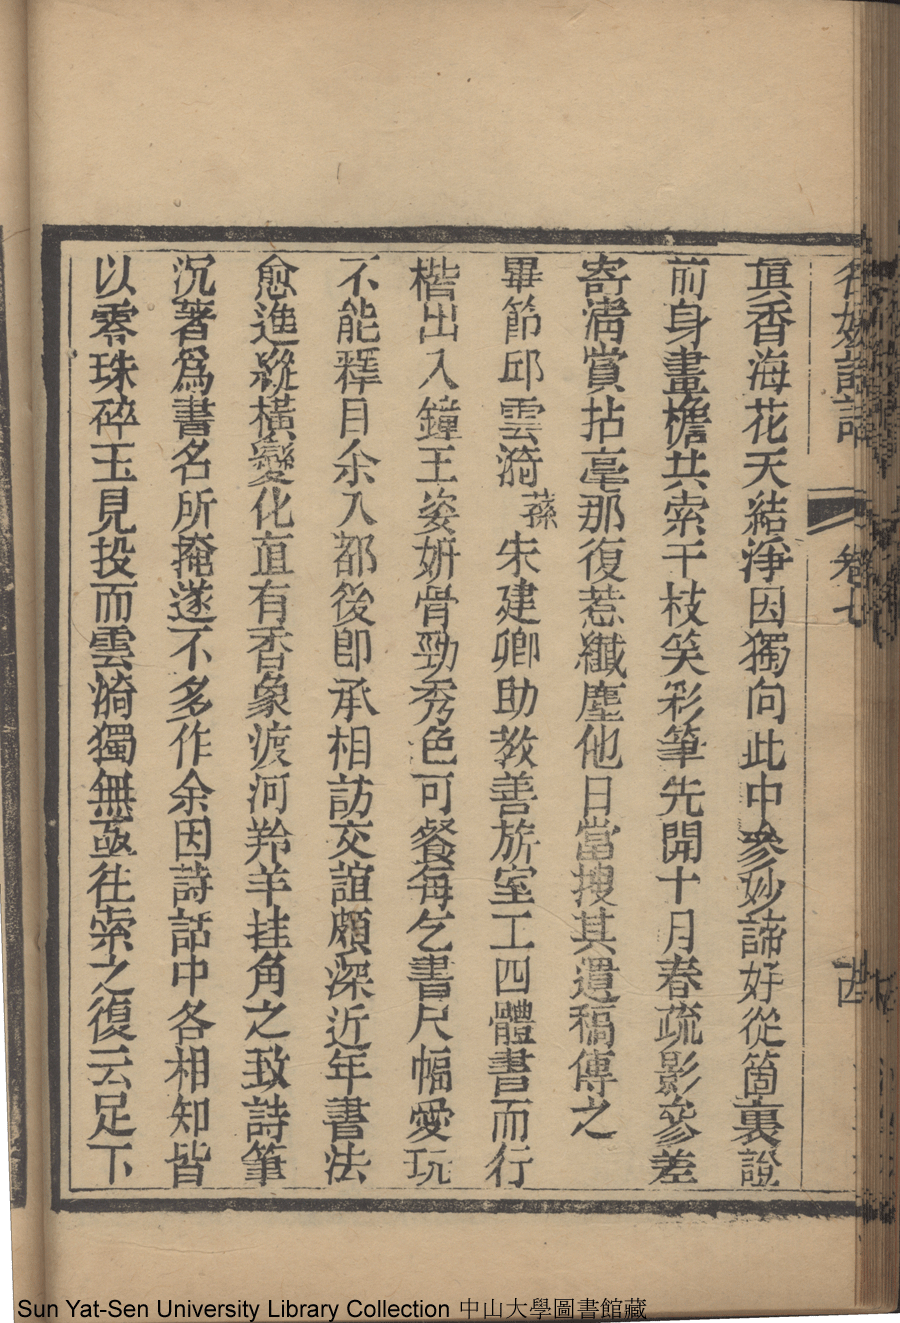 眞香海花天結淨因獨向此中參妙諦好從箇裏證
前身畫檐共索千枝笑彩筆先開十月春疏影參差
寄淸賞拈毫那復惹纖塵他日當搜其遺稿傳之
畢節邱雲漪蓀朱建卿助敎善旂室工四體書而行
楷出入鐘王姿妍骨勁秀色可餐每乞書尺幅愛玩
不能釋目余入都後卽承相訪交誼頗深近年書法
愈進縱橫變化直有香象渡河羚羊挂角之致詩筆
沉著爲書名所掩遂不多作余因詩話中各相知皆
以零珠碎玉見投而雲漪獨無亟往索之復云足下
卷七
Sun Yat-Sen University Library Collection 中山大學圖書館藏